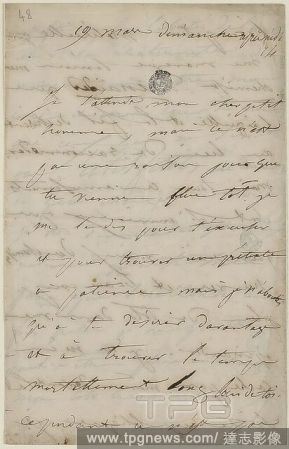 48
19 mars dimanche après midi
1 h
Je t'attends mon cher petit
homme, mais ce n'est
pas une raison pour que
tu viennes plus tôt. Je
me le dis pour t'excuser
et pour trouver un prétexte
à patience mais je n'aboutis
qu'à te désirer davantage
et à trouver le temps
mortellement long loin de toi.
cependant il n'y a que
TPG
www.tpgnews.com / 達志影像